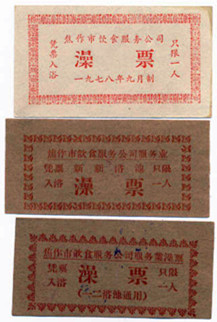 焦作市饮食服务公司
凭票入浴
澡票
只限一人
一九七八年九月制
焦作市饮食服务公司服务业
凭票
新新浴池
只限
入浴
澡票
一人
焦作市饮食服务公司服务业澡票
凭票
澡票
只限
入浴
一人
二浴池通用)